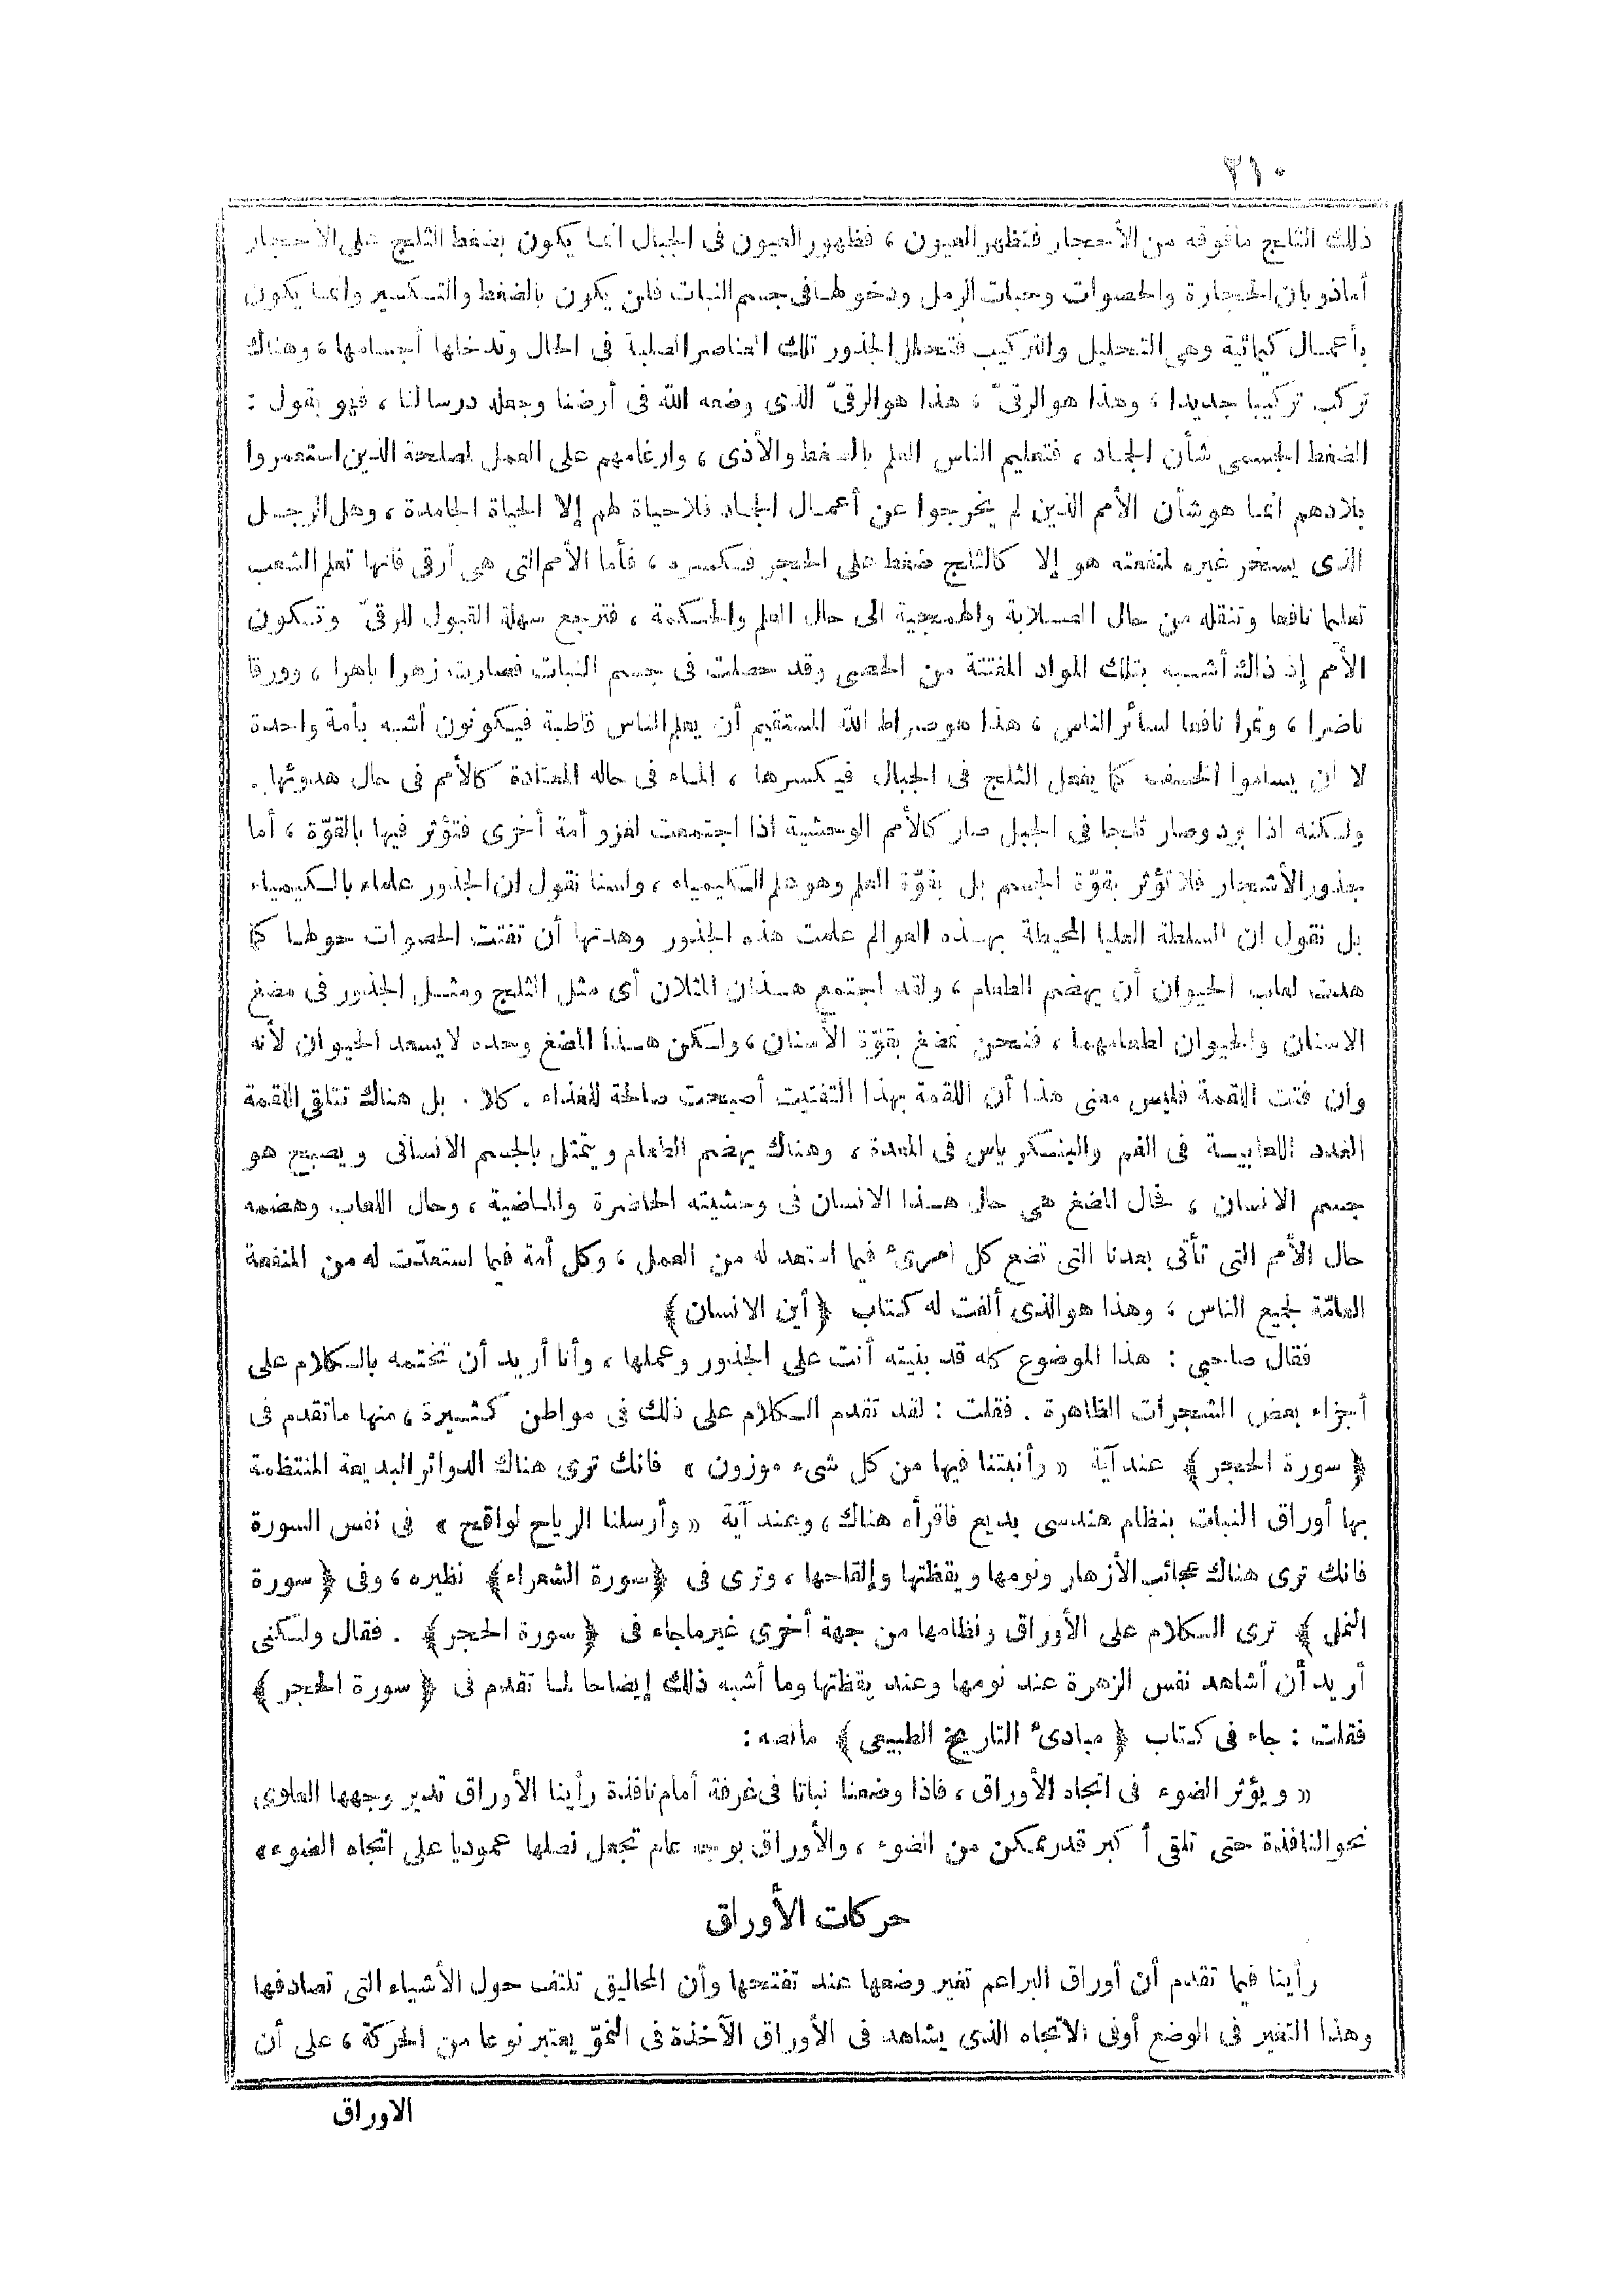 ٢١٠
ذلك الثلج مافوقه من الأحجار فتظهر العيون ، فظهور العيون فى الجبال انما يكون بضغط الثلج على الأحجار
أما ذوبان الحجارة والحصوات وحبات الرمل ودخولها فى جسم النبات فلن يكون بالضغط والتكسير وانما يكون
بأعمال كيمائية وهى التحليل والتركيب فتحلل الجذور تلك العناصر الصلبة فى الحال وتدخلها أجسامها ، وهناك
تركب تركيبا جديدا ، وهذا هو الرقىّ ، هذا هو الرقىّ الذى وضعه الله فى أرضنا وجعله درسا لنا ، فهو يقول :
الضغط الجسمى شأن الجماد ، فتعليم الناس العلم بالضغط والأذى ، وارغامهم على العمل لمصلحة الذين استعمروا
بلادهم انما هو شأن الأمم الذين لم يخرجوا عن أعمال الجماد فلا حياة لهم إلا الحياة الجامدة ، وهل الرجل
الذى يسخر غيره لمنفعته هو إلا كالثلج ضغط على الحجر فكسره ، فأما الأمم التى هى أرقى فانها تعلم الشعب
تعليما نافعا وتنقله من حال الصلابة والهمجية الى حال العلم والحكمة ، فترجع سهلة القبول للرقىّ وتكون
الأمم إذ ذاك أشبه بتلك المواد المفتتة من الحصى وقد حصلت فى جسم النبات فصارت زهرا باهرا ، وورقا
ناضرا ، وثمرا نافعا لسائر الناس ، هذا هو صراط الله المستقيم أن يعلم الناس قاطبة فيكونون أشبه بأمة واحدة
لا أن يساموا الخسف كما يفعل الثلج فى الجبال فيكسرها ، الماء فى حاله المعتادة كالأمم فى حال هدوئها .
ولكنه اذا برد وصار ثلجا فى الجبل صار كالأمم الوحشية اذا اجتمعت لغزو أمة أخرى فتؤثر فيها بالقوّة ، أما
جذور الأشجار فلا تؤثر بقوّة الجسم بل بقوّة العلم وهو علم الكيمياء ، ولسنا نقول ان الجذور علماء بالكيمياء
بل نقول ان السلطة العليا المحيطة بهذه العوالم علمت هذه الجذور وهدتها أن تفتت الحصوات حولها كما
هدت لعاب الحيوان أن يهضم الطعام ، ولقد اجتمع هذان المثلان أى مثل الثلج ومثل الجذور فى مضغ
الانسان والحيوان لطعامهما ، فنحن نمضغ بقوّة الأسنان ، ولكن هذا المضغ وحده لا يسعد الحيوان لأنه
وان فتت اللقمة فليس معنى هذا أن اللقمة بهذا التفتيت أصبحت صالحة للغذاء . كلا . بل هناك تتلقى اللقمة
الغدد اللعابية فى الفم والبنكرياس فى المعدة ، وهناك يهضم الطعام ويتمثل بالجسم الانسانى ويصبح هو
جسم الانسان ، فحال المضغ هى حال هذا الانسان فى وحشيته الحاضرة والماضية ، وحال اللعاب وهضمه
حال الأمم التى تأتى بعدنا التى تضع كل امرىء فيما استعد له من العمل ، وكل أمة فيما استعدّت له من المنفعة
العامّة لجميع الناس ، وهذا هو الذى ألفت له كتاب ﴿ أين الانسان ﴾
فقال صاحبى : هذا الموضوع كله قد بنيته أنت على الجذور وعملها ، وأنا أريد أن تختمه بالكلام على
أجزاء بعض الشجرات الظاهرة . فقلت : لقد تقدم الكلام على ذلك فى مواطن كثيرة ، منها ماتقدم فى
﴿ سورة الحجر ﴾ عند آية « وأنبتنا فيها من كل شىء موزون » فانك ترى هناك الدوائر البديعة المنتظمة
بها أوراق النبات بنظام هندسى بديع فاقرأه هناك ، وعند آية « وأرسلنا الرياح لواقح » فى نفس السورة
فانك ترى هناك عجائب الأزهار ونومها ويقظتها وإلقاحها ، وترى فى ﴿ سورة الشعراء ﴾ نظيره ، وفى ﴿ سورة
النمل ﴾ ترى الكلام على الأوراق ونظامها من جهة أخرى غير ماجاء فى ﴿ سورة الحجر ﴾ . فقال ولكنى
أريد أن أشاهد نفس الزهرة عند نومها وعند يقظتها وما أشبه ذلك إيضاحا لما تقدم فى ﴿ سورة الحجر ﴾
فقلت : جاء فى كتاب ﴿ مبادىء التاريخ الطبيعى ﴾ مانصه :
« ويؤثر الضوء فى اتجاه الأوراق ، فاذا وضعنا نباتا فى غرفة أمام نافذة رأينا الأوراق تدير وجهها العلوى
نحو النافذة حتى تلقى أكبر قدر ممكن من الضوء ، والأوراق بوجه عام تجعل نصلها عموديا على اتجاه الضوء »
حركات الأوراق
رأينا فيما تقدم أن أوراق البراعم تغير وضعها عند تفتحها وأن المحاليق تلتف حول الأشياء التى تصادفها
وهذا التغير فى الوضع أو فى الاتجاه الذى يشاهد فى الأوراق الآخذة فى النموّ يعتبر نوعا من الحركة ، على أن
الاوراق